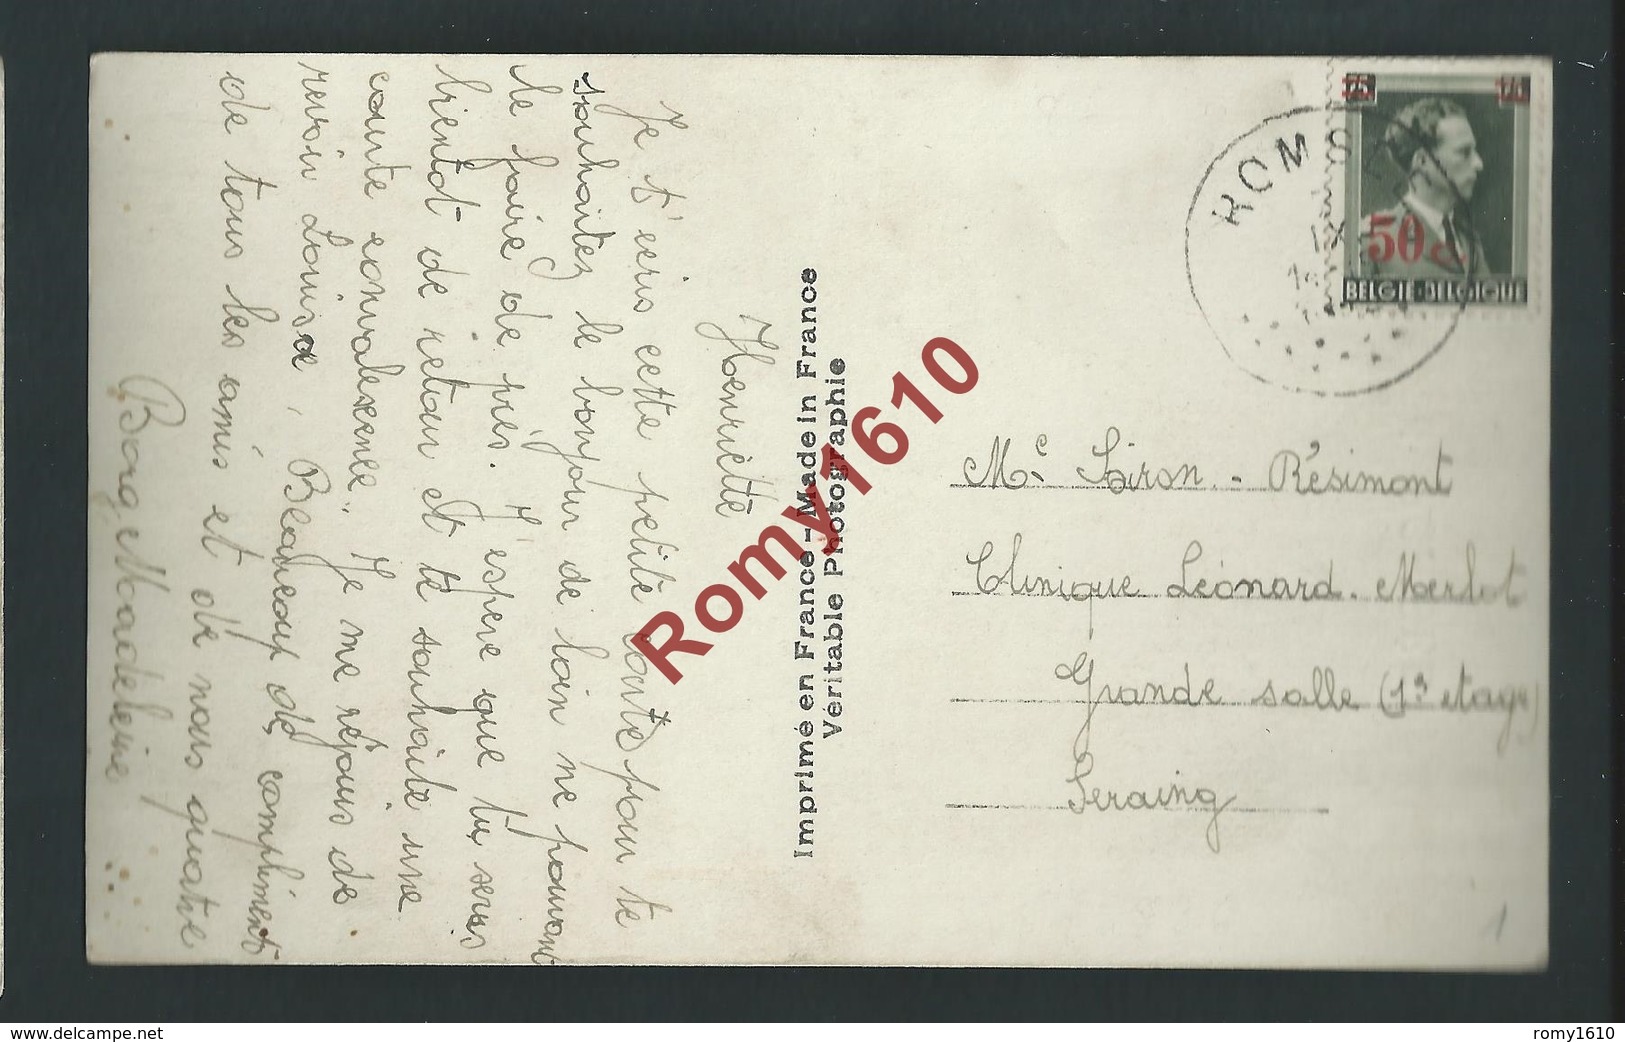 Henriette
Je t'ecris cette petite carte pour te
souhaitez le bonjour de loin ne pouvant
le faire de près. J'espère que tu seras
bientot de retour et te souhaite une
courte convalescence. Je me réjouis de
revoir Louisa, Beaucoup de compliments
de tous les amis et de nous quatre
Madeleine
Imprimé en France - Made in France
Véritable Photographie
BELGIE-BELGIQUE
50c
Me Soiron - Résimont
Clinique Léonard. Merlot
Grande salle (1r etage)
Seraing
1
Romy1610
www.delcampe.net
romy1610